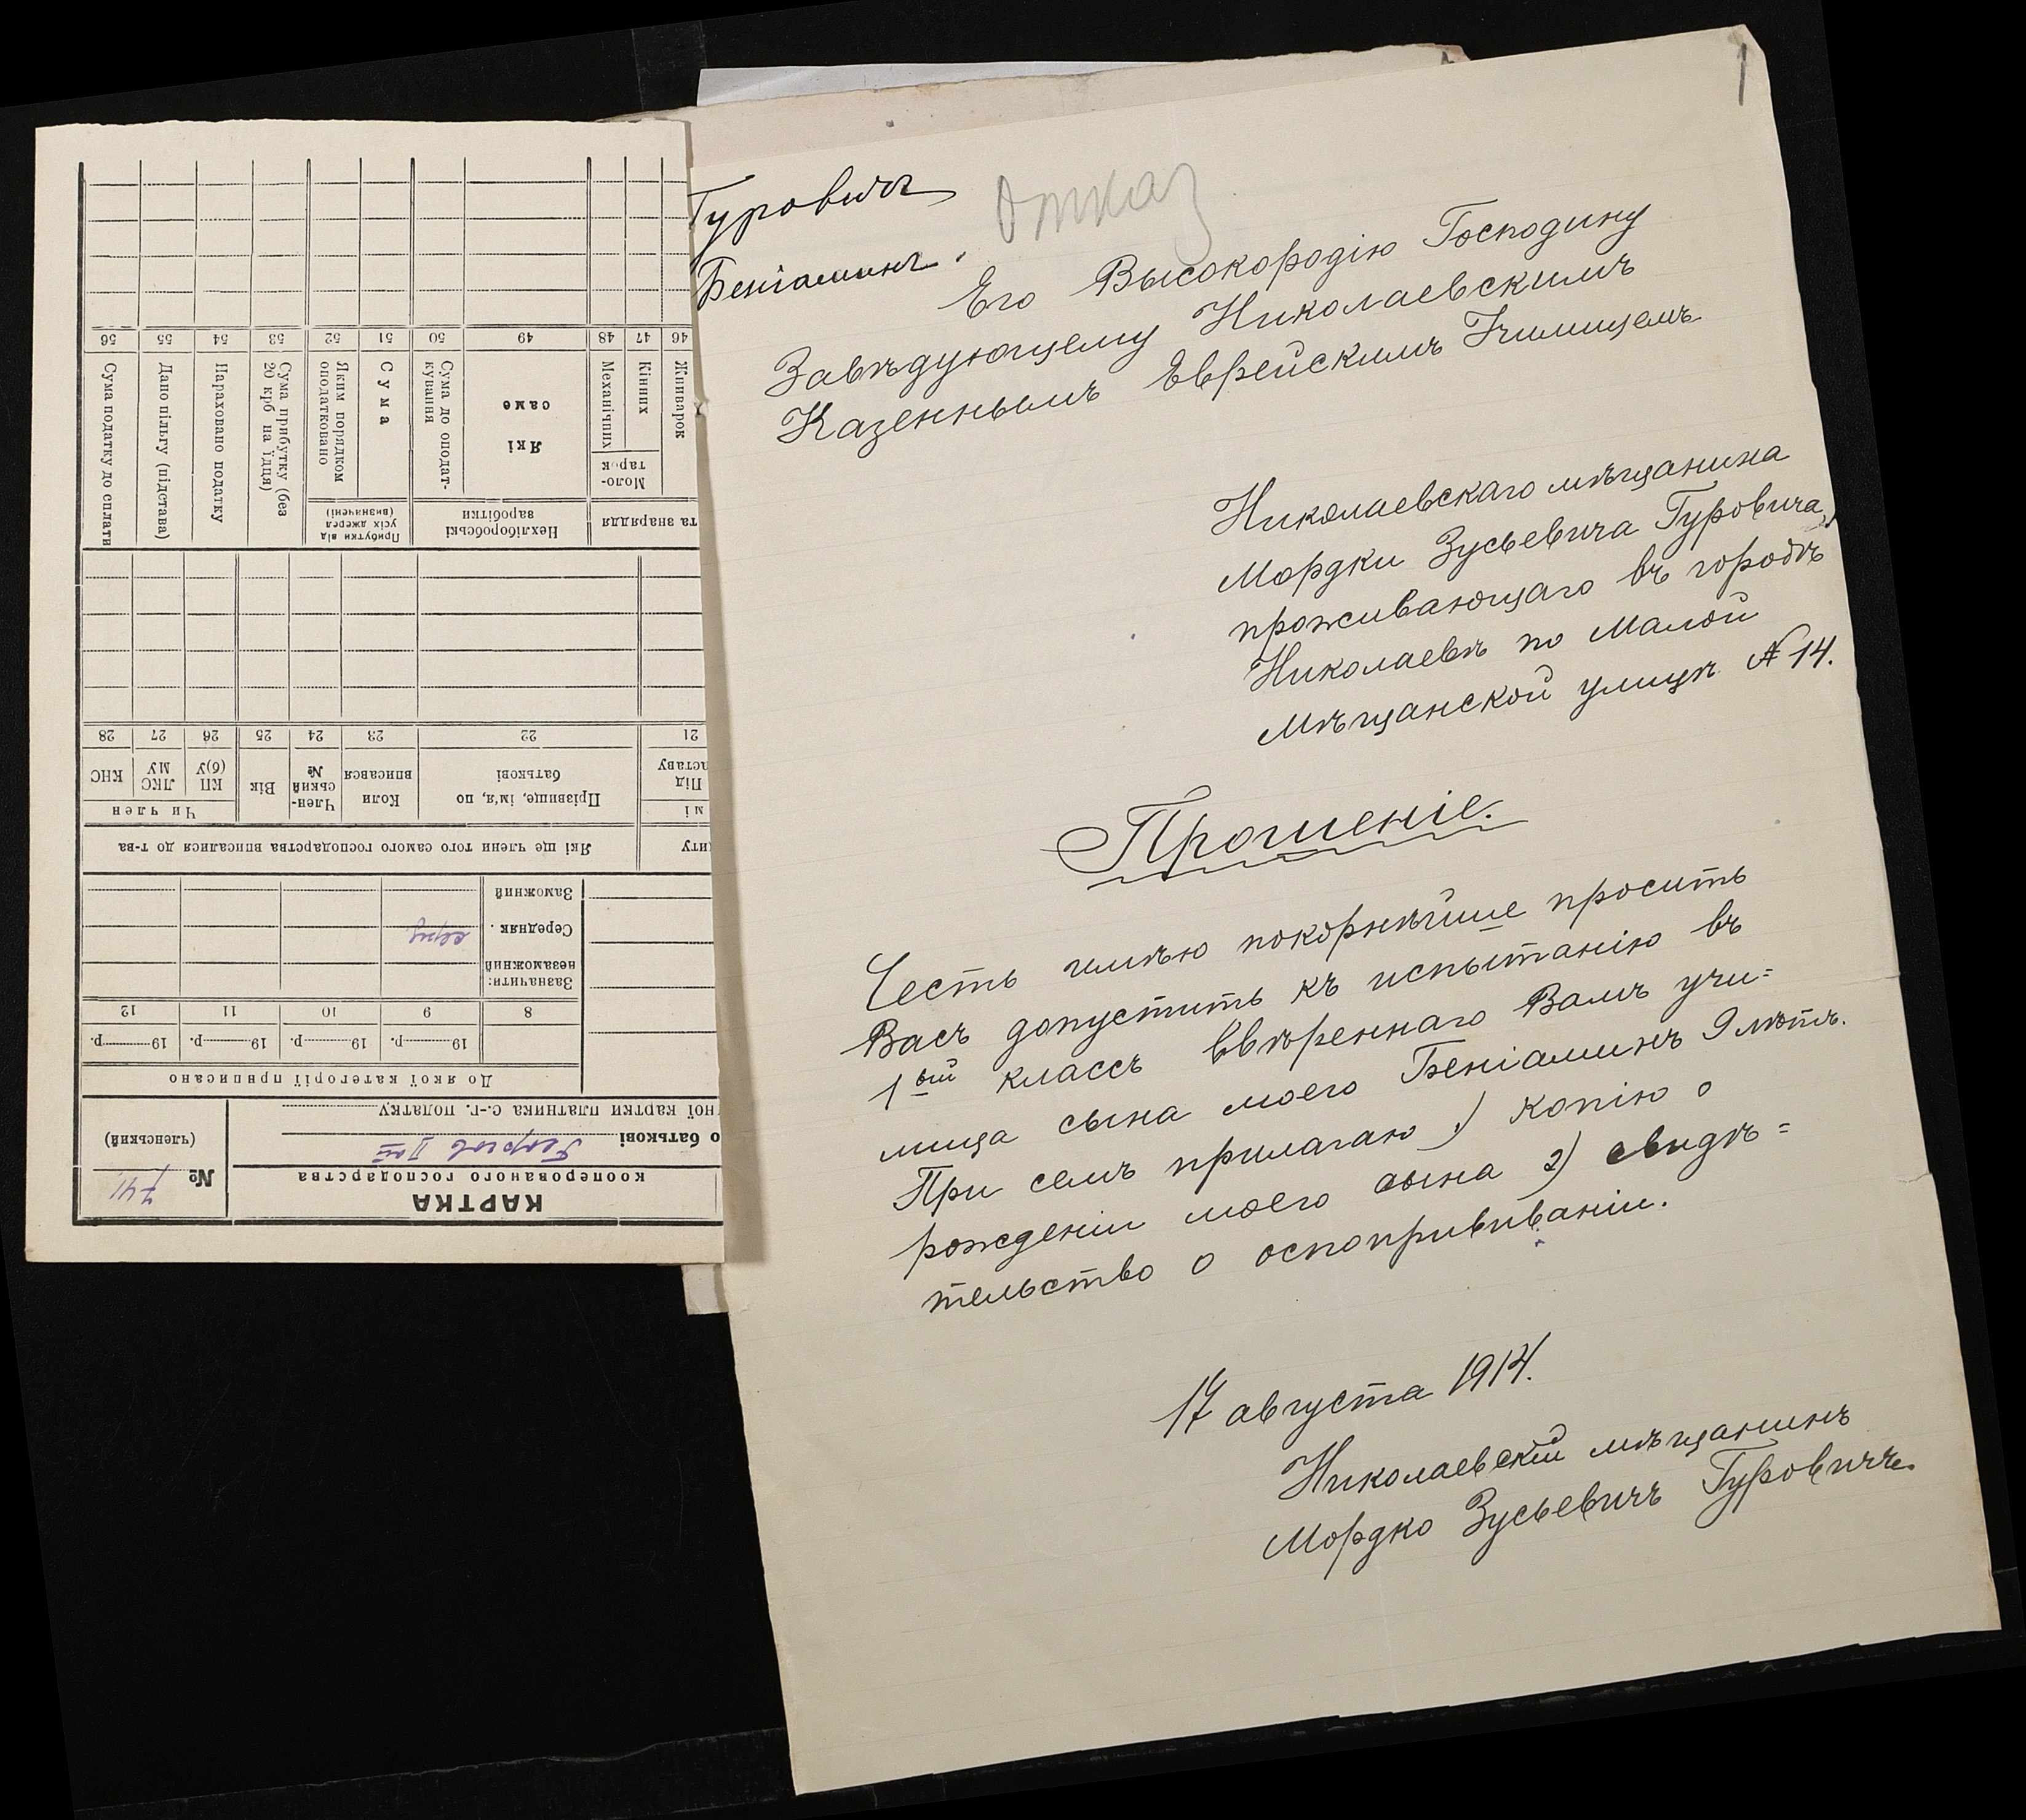 Гуровичъ
Беніаминъ.
Отказ
1
Его Высокородію Господину
Завѣдующему Николаевскимъ
Казеннымъ Еврейскимъ Училищемъ
Николаевскаго мѣщанина
Мордки Зусьевича Гуровича,
проживающаго въ городѣ
Николаевѣ по Малой
Мѣщанской улицѣ № 14.
Прошеніе.
Честь имѣю покорнѣйше просить
Васъ допустить къ испытанію въ
1ый классъ ввѣреннаго Вамъ учи=
лища сына моего Беніаминъ 9 лѣтъ.
При семъ прилагаю 1) копію о
рожденіи моего сына 2) свидѣ=
тельство о оспопрививаніи.
17 августа 1914.
Николаевскій мѣщанинъ
Мордко Зусьевичъ Гуровичъ.
КАРТКА
кооперованого господарства
№
(членський)
о батькові
ної картки платника с.-г. податку
До якої категорії приписано
19 р.
19 р.
19 р.
19 р.
8
9
10
11
12
Зазначити:
незаможний
Середняк
Заможний
Які ще члени того самого господарства вписалися до т-ва
Прізвище, ім'я, по
батькові
Коли
вписався
Член-
ський
№
Вік
Чи член
КП
(б)У
ЛКС
МУ
КНС
21
22
23
24
25
26
27
28
та знаряддя
Нехліборобські
заробітки
Прибутки від
усіх джерел
(визначені)
Жниварок
Моло-
тарок
Кінних
Механічних
Які
саме
Сума до оподат-
кування
Сума
Яким порядком
оподатковано
Сума прибутку (без
20 крб на їдця)
Нараховано податку
Дано пільгу (підстава)
Сума податку до сплати
46
47
48
49
50
51
52
53
54
55
56